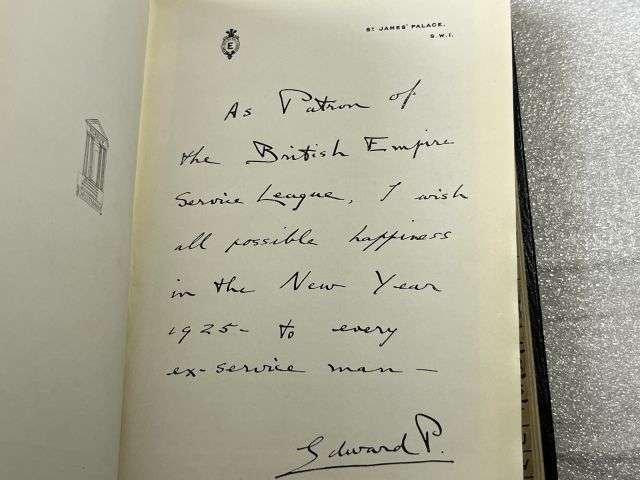 E
ST. JAMES' PALACE.
S.W.1.
As Patron of
the British Empire
Service League, I wish
all possible happiness
in the New Year
1925- to every
ex-service man -
Edward P.